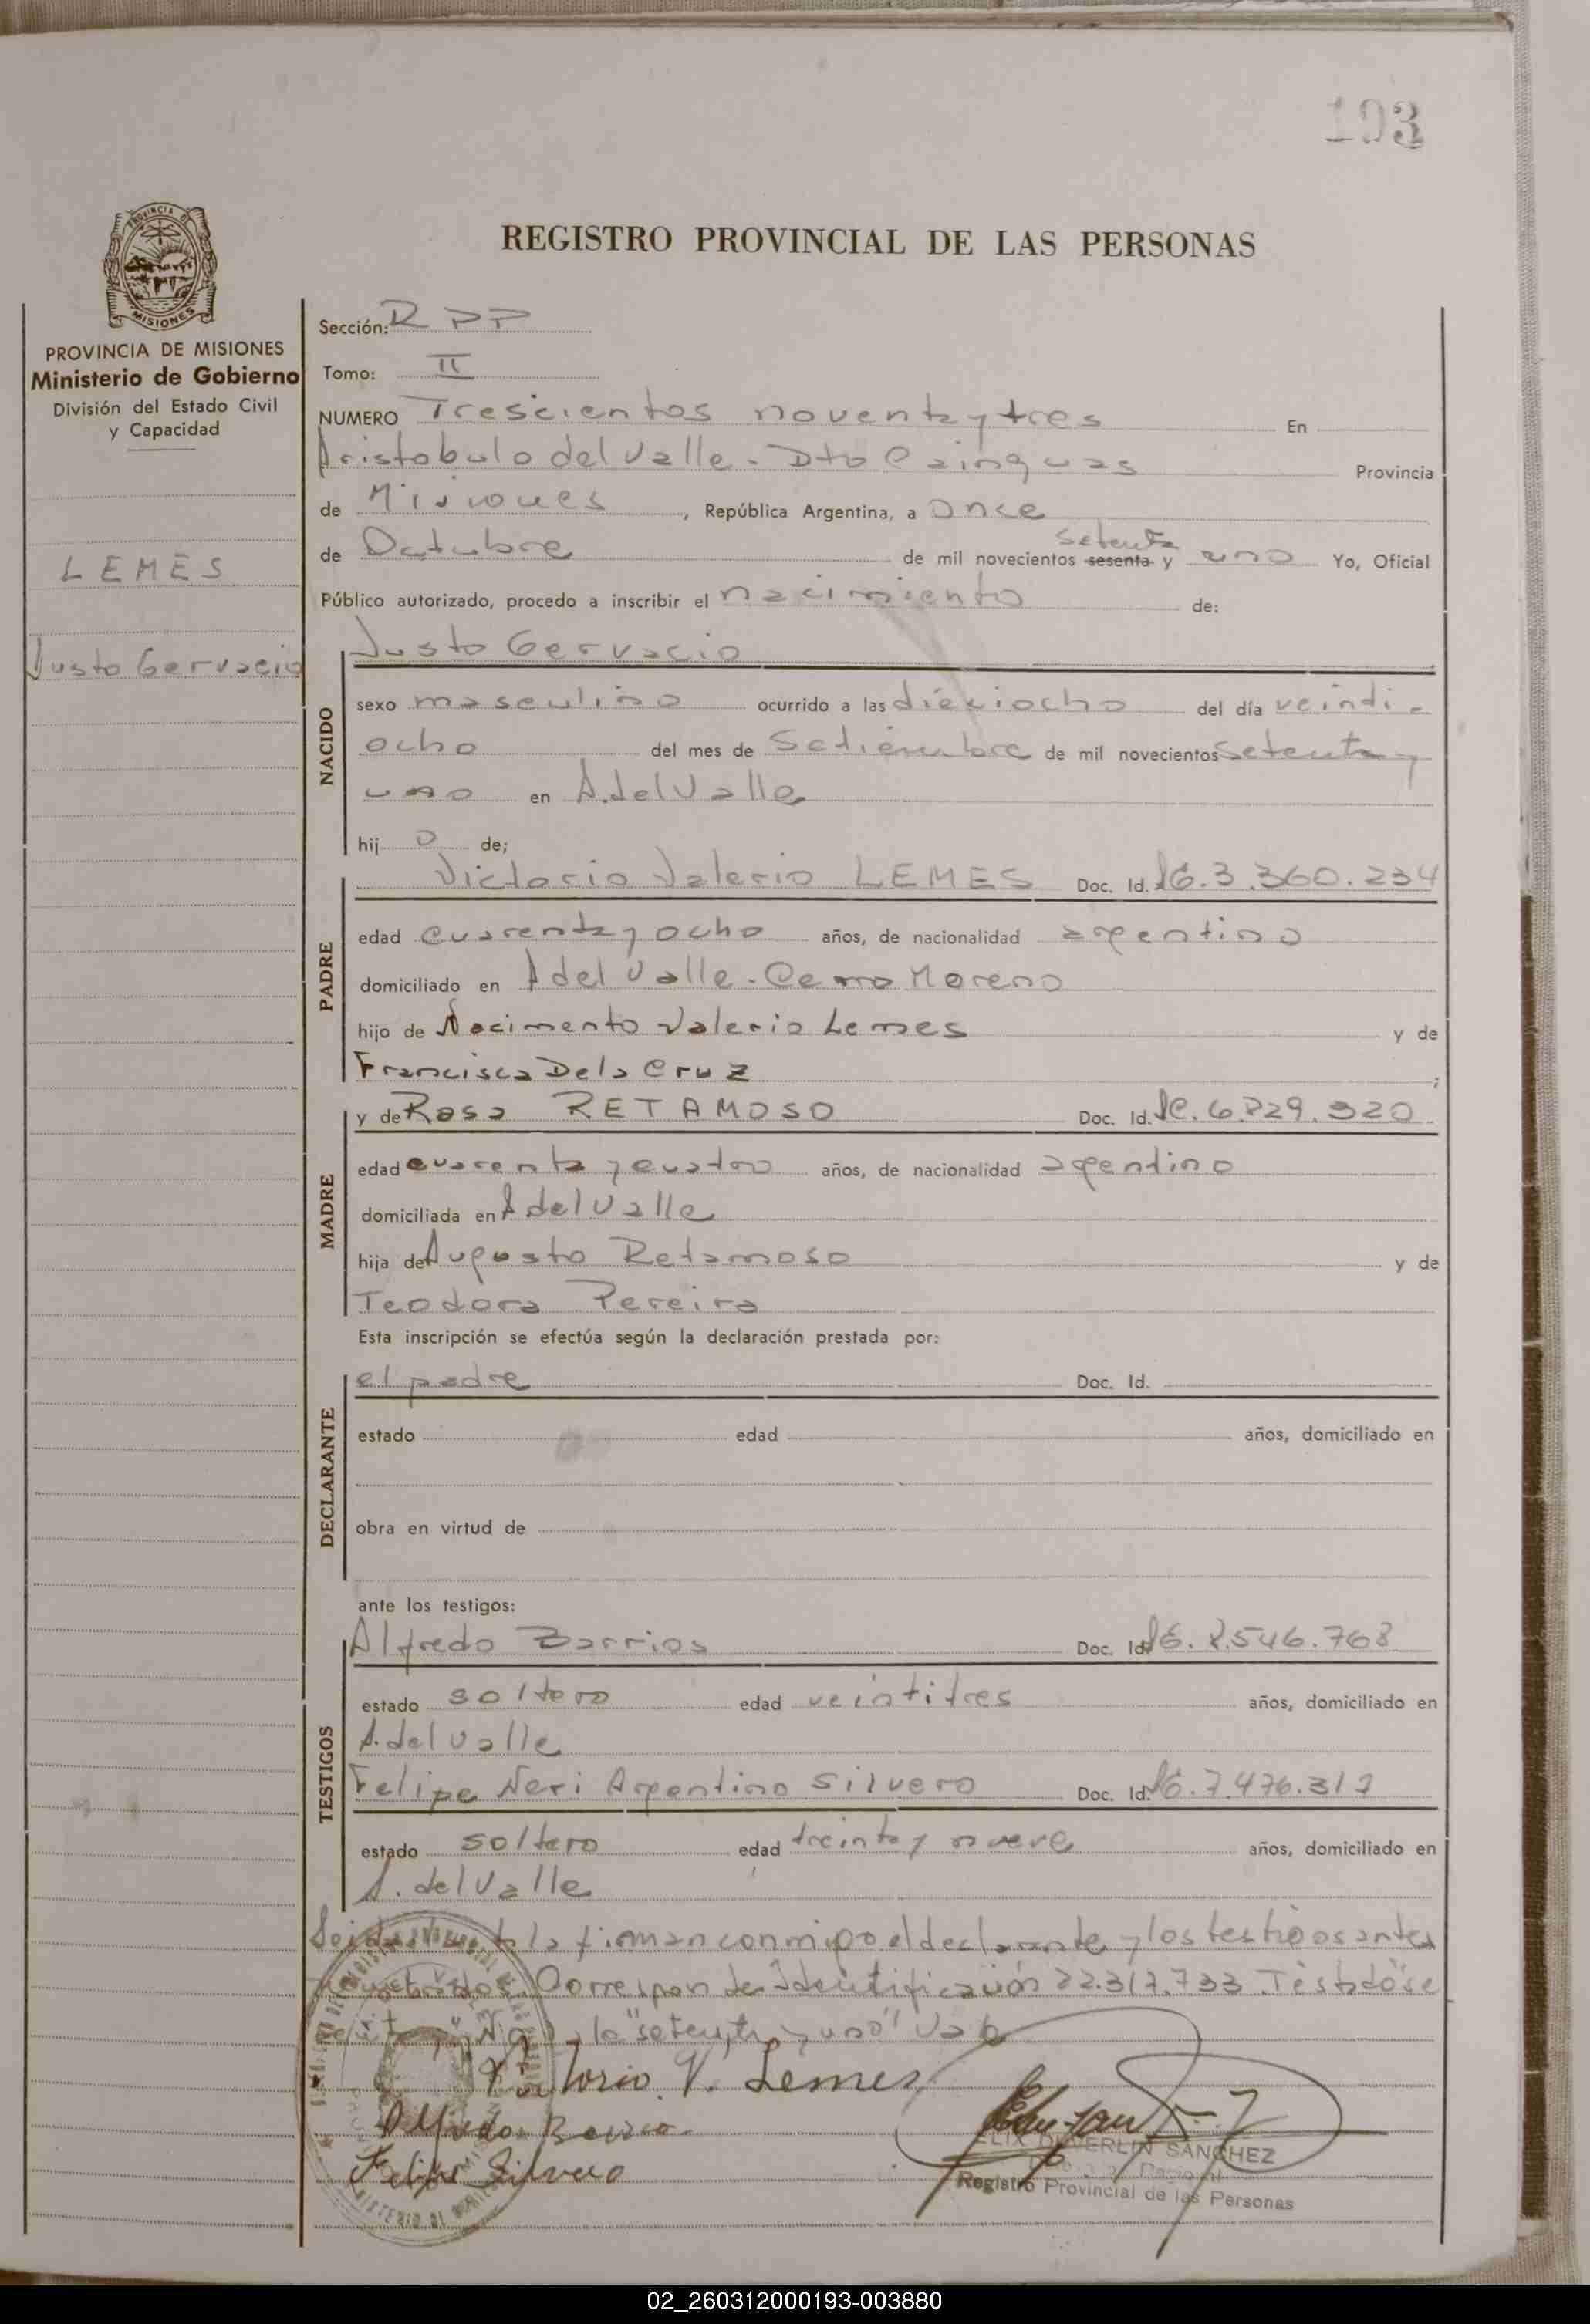 193
REGISTRO PROVINCIAL DE LAS PERSONAS
PROVINCIA DE MISIONES
Ministerio de Gobierno
División del Estado Civil
y Capacidad
LEMES
Justo Gervacio
Sección: R P P
Tomo: II
NUMERO Trescientos noventa y tres En
Aristobulo del Valle - Dto Cainguas Provincia
de Misiones, República Argentina, a Once
de Octubre de mil novecientos sesenta setenta y uno Yo, Oficial
Público autorizado, procedo a inscribir el nacimiento de:
Justo Gervacio
NACIDO
sexo masculino ocurrido a las dieciocho del día veindi-
ocho del mes de Setiembre de mil novecientos setenta y
uno en A. del Valle
hij o de;
PADRE
Victorio Valerio LEMES Doc. Id. 3.360.234
edad cuarenta y ocho años, de nacionalidad argentino
domiciliado en A del Valle - Cerro Moreno
hijo de Nacimento Valerio Lemes y de
Francisca Dela Cruz ;
MADRE
y de Rosa RETAMOSO Doc. Id. 6.829.320
edad cuarenta y cuatro años, de nacionalidad argentino
domiciliada en A del Valle
hija de Augusto Retamoso y de
Teodora Pereira
Esta inscripción se efectúa según la declaración prestada por:
DECLARANTE
el padre Doc. Id.
estado edad años, domiciliado en
obra en virtud de
ante los testigos:
TESTIGOS
Alfredo Barrios Doc. Id. 8.546.768
estado soltero edad veintitres años, domiciliado en
A. del Valle
Felipe Neri Argentino Silvero Doc. Id. 7.476.317
estado soltero edad treinta y nueve años, domiciliado en
A. del Valle
la firman conmigo el declarante y los testigos antes
Corresponde Identificación 22.317.733. Testado "se
"setenta y uno" Vale
Victorio V. Lemes
Alfredo Barrio
Felipe Silvero
SANCHEZ
Registro Provincial de las Personas
02_260312000193-003880